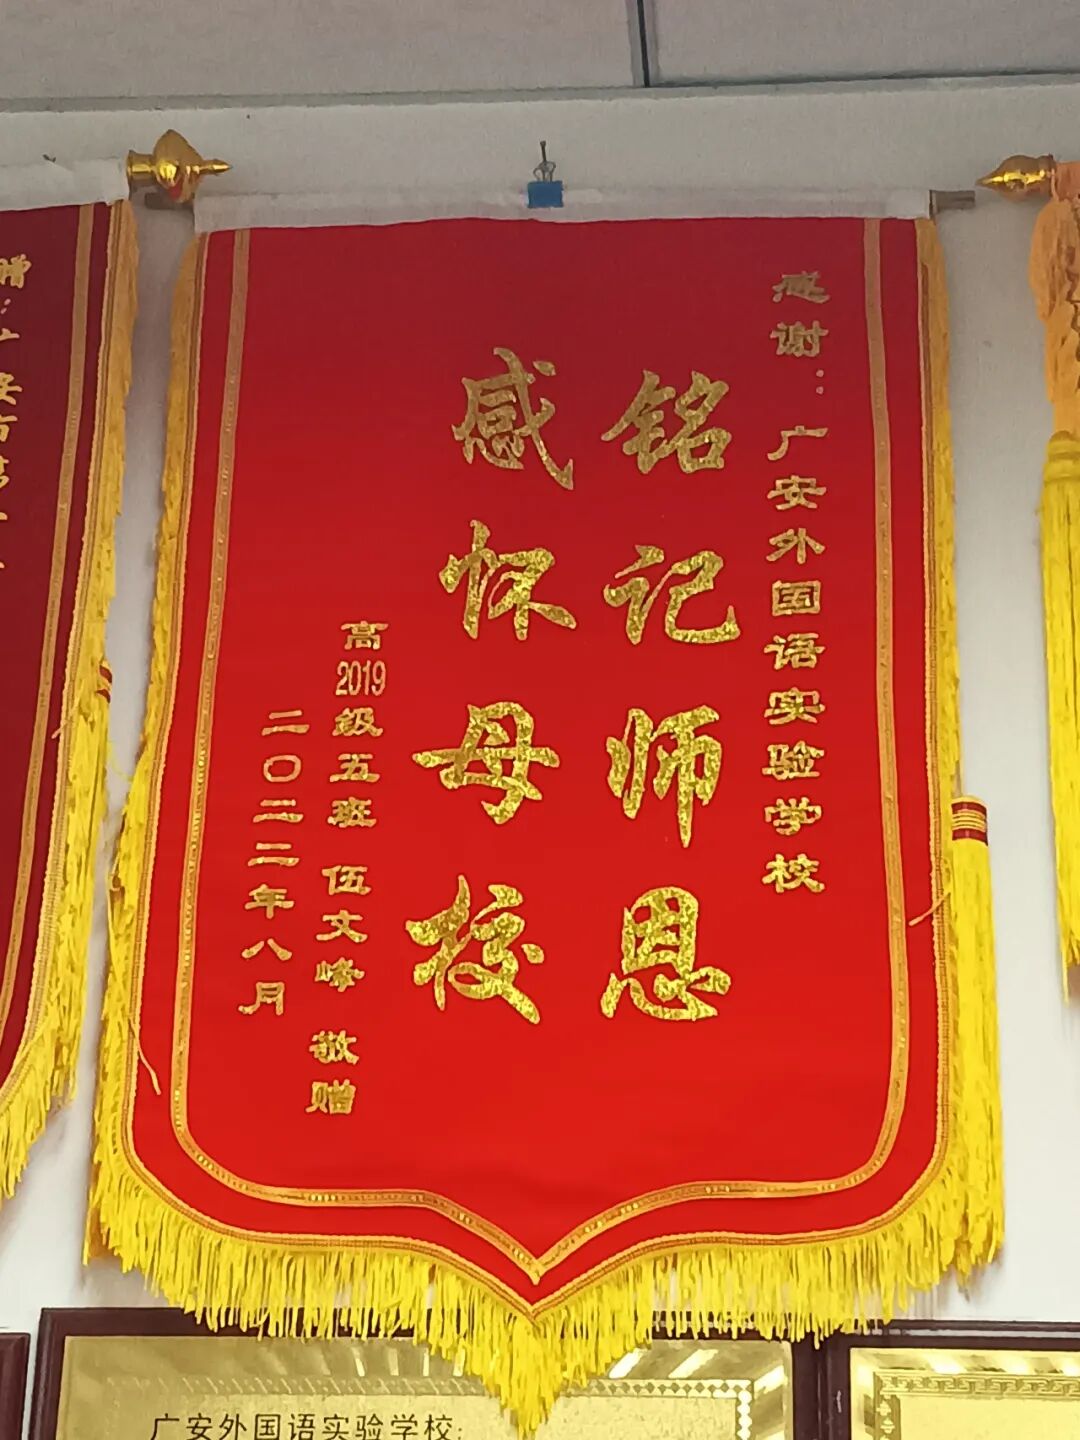 感谢：广安外国语实验学校
铭记师恩
感怀母校
高2019级五班 伍文峰 敬赠
二〇二二年八月
赠：广安市第
广安外国语实验学校：